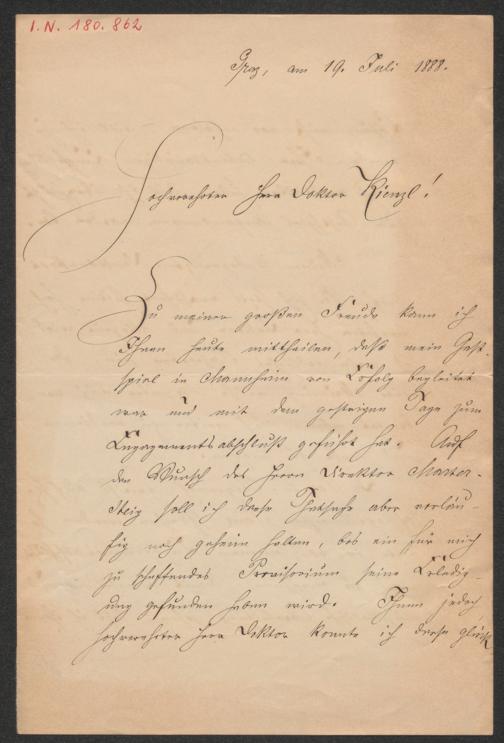 I.N. 180.862
Graz, am 19. Juli 1888.
Hochverehrter Herr Doktor Kienzl!
Zu meiner großen Freude kann ich
Ihnen heute mittheilen, daß mein Gast-
spiel in Mannheim von Erfolg begleitet
war und mit dem gestrigen Tage zum
Engagementsabschluß geführt hat. Auf
den Wunsch des Herrn Direktor Marter-
steig soll ich diese Thatsache aber vorläu-
fig noch geheim halten, bis ein für mich
zu schaffendes Provisorium seine Erledig-
ung gefunden haben wird. Ihnen jedoch
hochverehrter Herr Doktor konnte ich diese glück